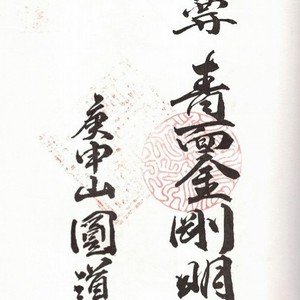 尊 青面金剛明
庚申山 圓道